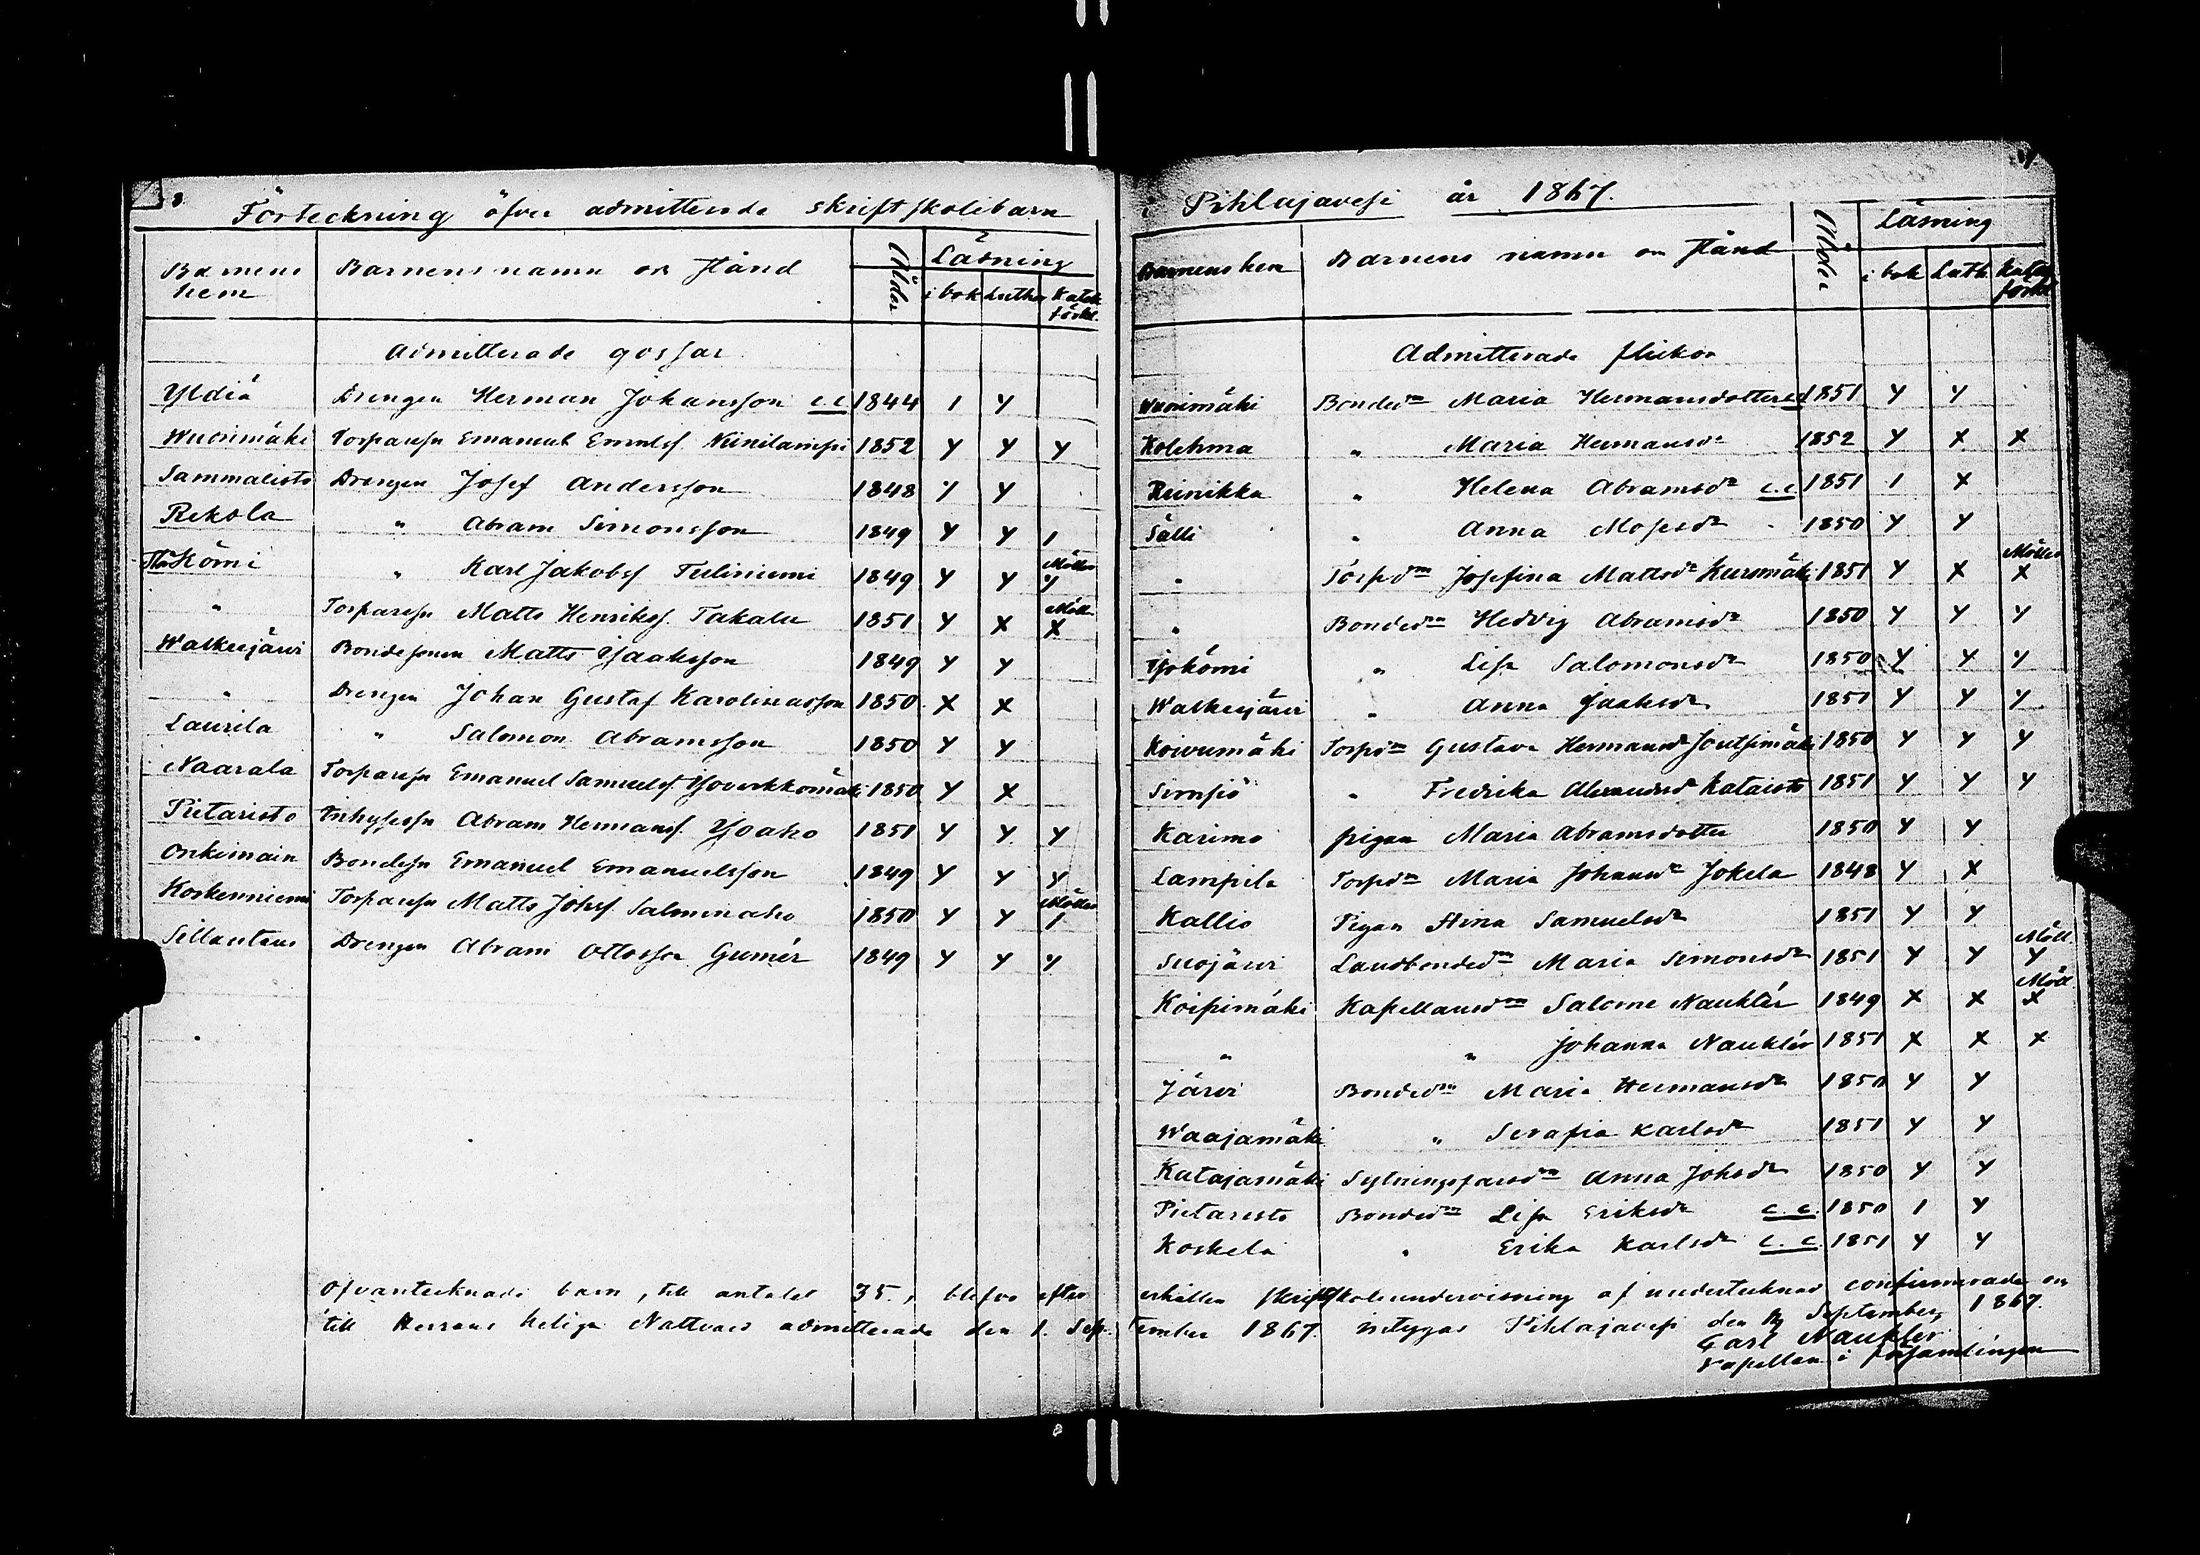 8
Förteckning öfver admitterade skriftskolebarn
Barnens hem | Barnens namn och stånd | Ålder | Läsning
i bok | Luther | Katek. förkl.
Admitterade gossar
Yldiä | Drengen Herman Johansson c.c. | 1844 | I | Y
Wuorimäki | Torparesn Emanuel Emanlsf. Niinilampi | 1852 | Y | Y | Y
Sammalisto | Drengen Josef Andersson | 1848 | Y | Y
Rekola | " Abram Simonsson | 1849 | Y | Y | I
Kömi | " Karl Jakobsf. Tuliniemi | 1849 | Y | Y | Möller Y
" | Torparesn Matts Henriksf. Takala | 1851 | Y | X | Möll. X
Walkeejärvi | Bondesonen Matts Isaaksson | 1849 | Y | Y
" | Drengen Johan Gustaf Karolinasson | 1850 | X | X
Laurila | " Salomon Abramsson | 1850 | Y | Y
Naarala | Torparesn Emanuel Samuelsf. | 1850 | Y | X
Pietaristo | Inhysesn Abram Hermansf. Isoaho | 1851 | Y | Y | Y
Onkimain | Bondesn Emanuel Emanuelsson | 1849 | Y | Y | Y
Koskenniemi | Torparesn Matts Johsf. Salminaho | 1850 | Y | Y | Möller I
Sillantaus | Drengen Abram Ottosson Gumér | 1849 | Y | Y | Y
i Pihlajavesi år 1867.
Barnens hem | Barnens namn och stånd | Ålder | Läsning
i bok | Luth. | Katek. förkl.
Admitterade flickor
Wuorimäki | Bonded:n Maria Hermansdotter c.c. | 1851 | Y | Y
Kolehma | " Maria Hermansdr | 1852 | Y | X | X
Reinikka | " Helena Abramsdr c.c. | 1851 | I | X
Sälli | " Anna Mosesdr | 1850 | Y | Y
" | Torpd:n Josefina Mattsdr Kursmäki | 1851 | Y | X | Möller X
" | Bonded:n Hedvig Abramsdr | 1850 | Y | Y | Y
Isokömi | " Lisa Salomonsdr | 1850 | Y | Y | Y
Walkeejärvi | " Anna Isaaksdr | 1851 | Y | Y | Y
Koivumäki | Torpd:n Gustava Hermansdr Joutsimäki | 1850 | Y | Y | Y
Sirnsiö | " Fredrika Alexandsdr Kataisto | 1851 | Y | Y | Y
Karimo | pigan Maria Abramsdotter | 1850 | Y | Y
Lampila | Torpd:n Maria Johansdr Jokela | 1848 | Y | X
Kallio | Pigan Stina Samuelsdr | 1851 | Y | Y
Suojärvi | Landbonded:n Maria Simonsdr | 1851 | Y | Y | Möll. Y
Koipimäki | Kapellansd:n Salome Nauklér | 1849 | X | X | Möll. X
" | " Johanna Nauklér | 1851 | X | X | X
Järvi | Bonded:n Maria Hermansdr | 1850 | Y | Y
Waajamäki | " Serafia Karlsdr | 1851 | Y | Y
Katajamäki | Sytningsfarsd:n Anna Johsdr | 1850 | Y | Y
Pietaristo | Bonded:n Lisa Eriksdr c.c. | 1850 | I | Y
Koskela | " Erika Karlsdr c.c. | 1851 | Y | Y
Ofvantecknade barn, till antalet 35, blefvo efter erhållen skriftskoleundervisning af undertecknad confirmerade och
till Herrans heliga Nattvard admitterade den 1. September 1867. intygar Pihlajavesi den September 1867.
Carl Nauklér
Kapellan i församlingen